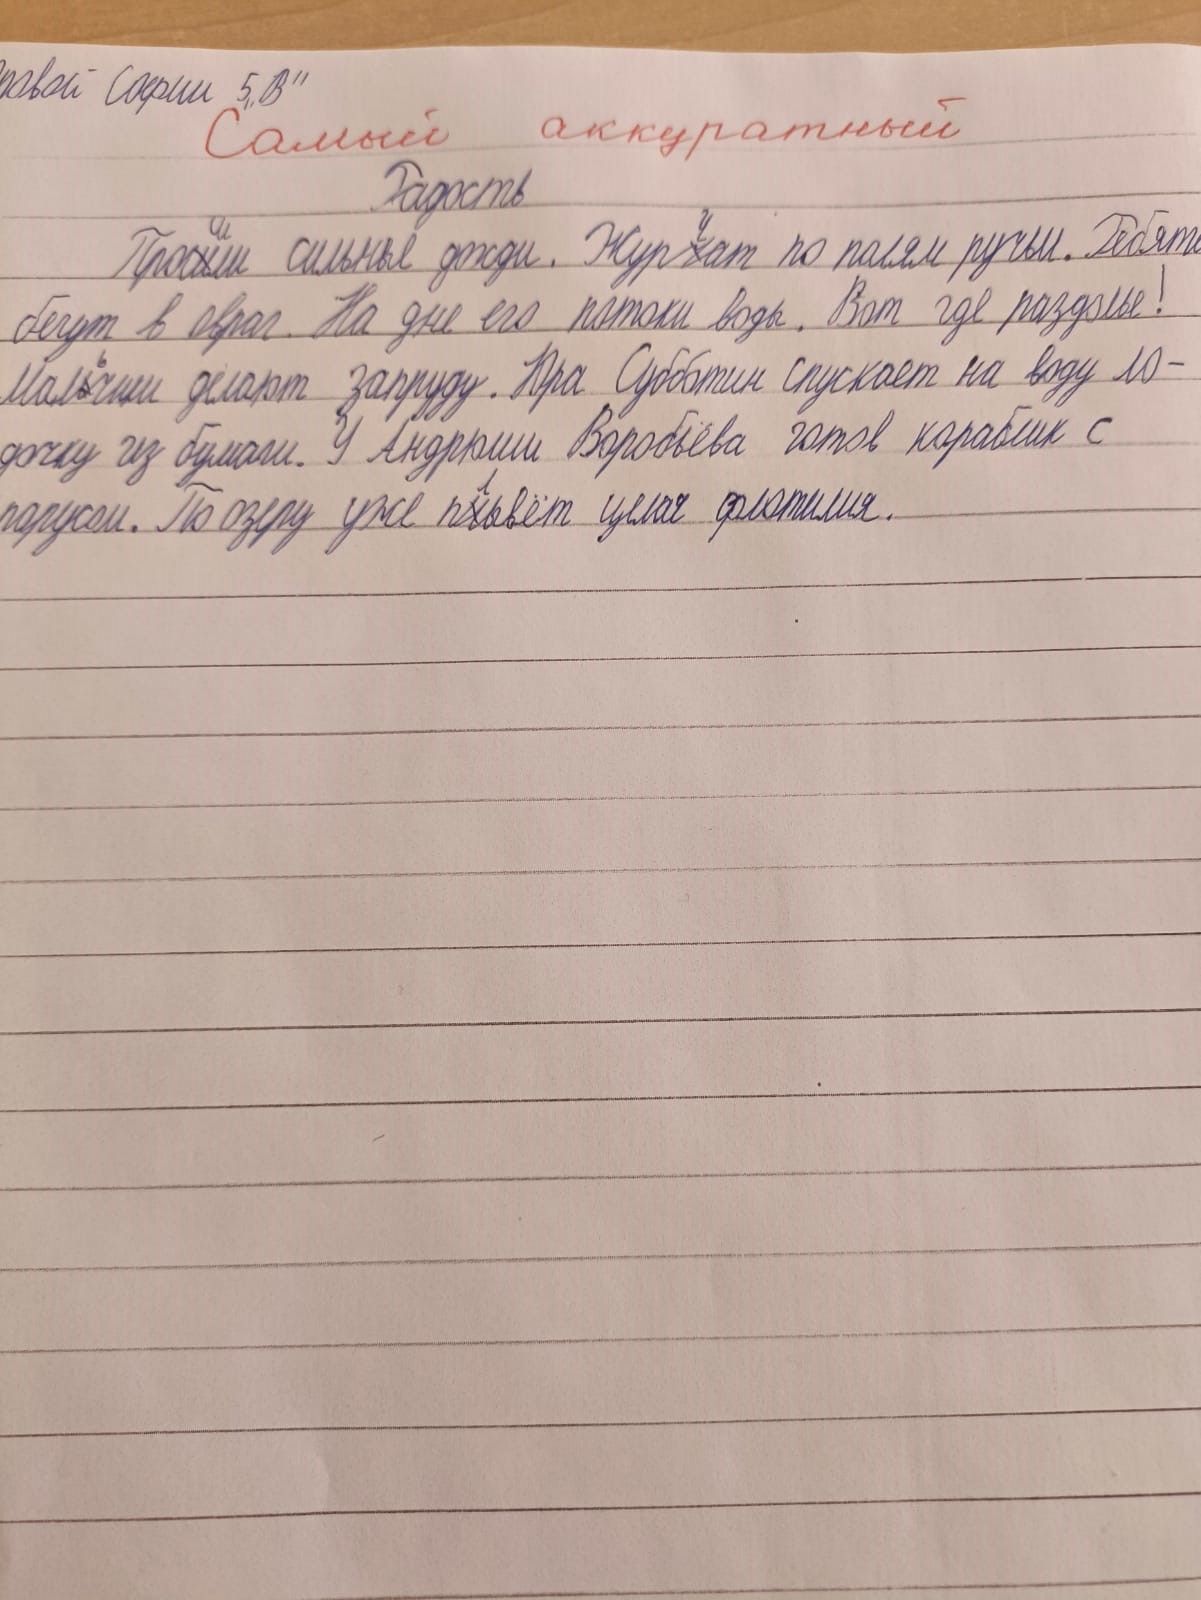 ровой Софии 5„В"
Самый аккуратный
Радость
Прошли сильные дожди. Журчат по полям ручьи. Ребята
бегут в овраг. На дне его потоки воды. Вот где раздолье!
Мальчики делают запруду. Юра Субботин спускает на воду ло-
дочку из бумаги. У Андрюши Воробьёва готов кораблик с
парусом. По озеру уже плывёт целая флотилия.